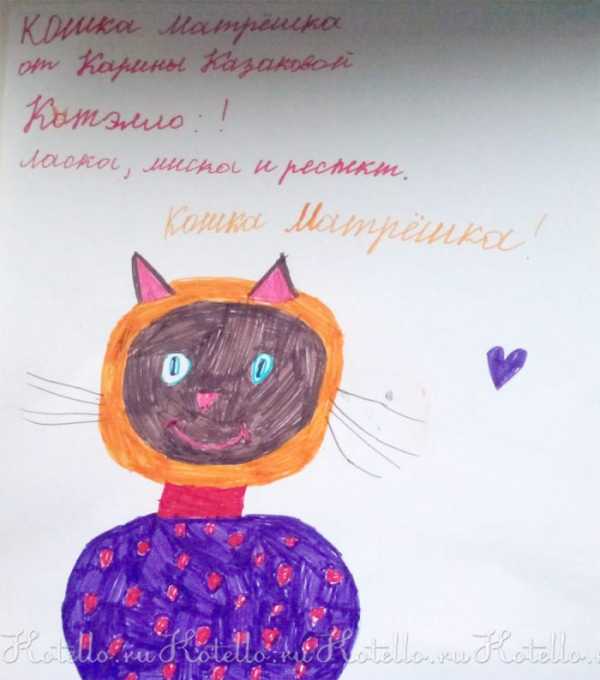 Кошка Матрёшка
от Карины Казаковой
Котэлло: !
ласка, миска и респект.
Кошка Матрёшка!
Kotello.ru Kotello.ru Kotello.ru Kotello.ru